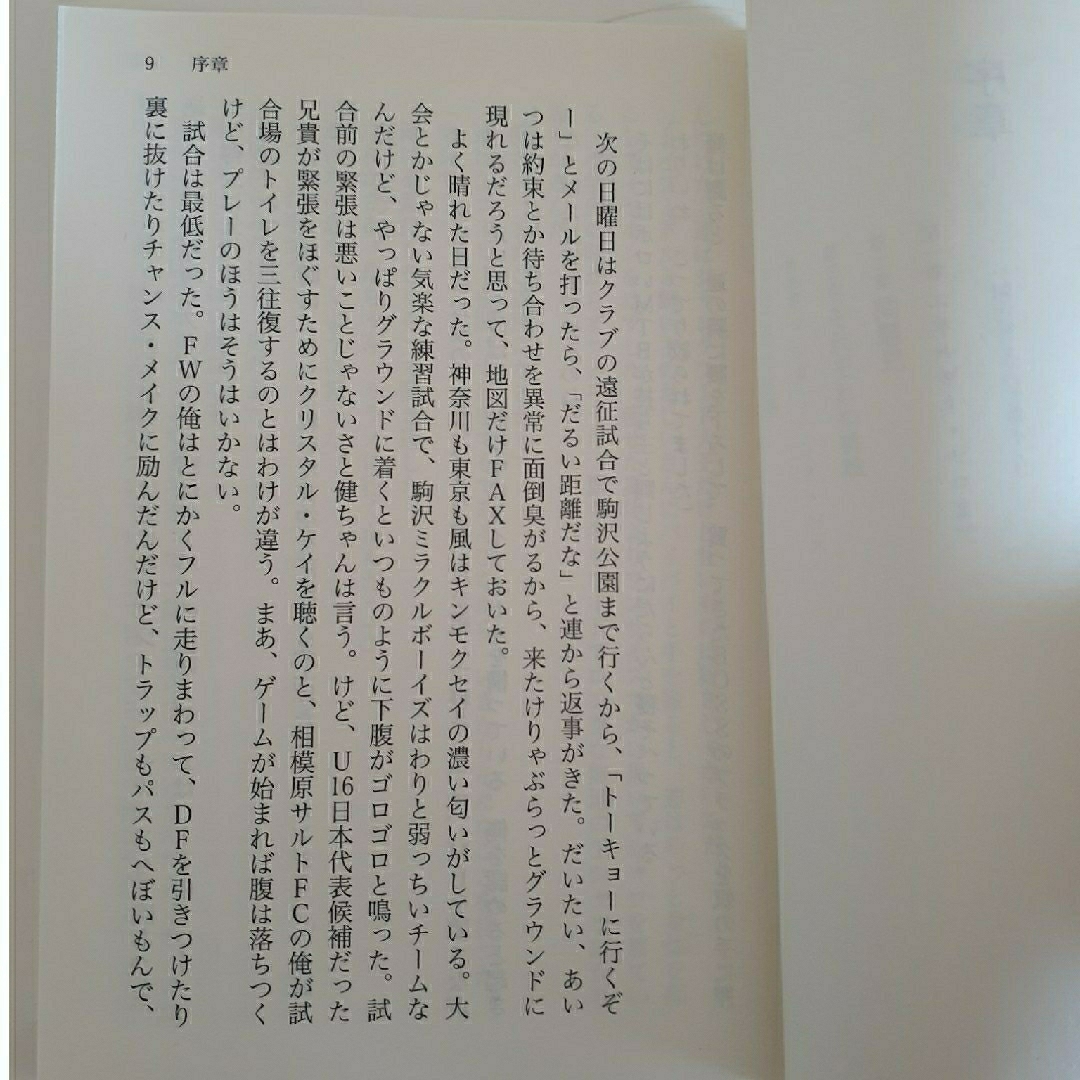 9　序章
次の日曜日はクラブの遠征試合で駒沢公園まで行くから、「トーキョーに行くぞ
ー」とメールを打ったら、「だるい距離だな」と連から返事がきた。だいたい、あい
つは約束とか待ち合わせを異常に面倒臭がるから、来たけりゃぶらっとグラウンドに
現れるだろうと思って、地図だけＦＡＸしておいた。
よく晴れた日だった。神奈川も東京も風はキンモクセイの濃い匂いがしている。大
会とかじゃない気楽な練習試合で、駒沢ミラクルボーイズはわりと弱っちいチームな
んだけど、やっぱりグラウンドに着くといつものように下腹がゴロゴロと鳴った。試
合前の緊張は悪いことじゃないさと健ちゃんは言う。けど、Ｕ16日本代表候補だった
兄貴が緊張をほぐすためにクリスタル・ケイを聴くのと、相模原サルトＦＣの俺が試
合場のトイレを三往復するのとはわけが違う。まあ、ゲームが始まれば腹は落ちつく
けど、プレーのほうはそうはいかない。
試合は最低だった。ＦＷの俺はとにかくフルに走りまわって、ＤＦを引きつけたり
裏に抜けたりチャンス・メイクに励んだんだけど、トラップもパスもへぼいもんで、